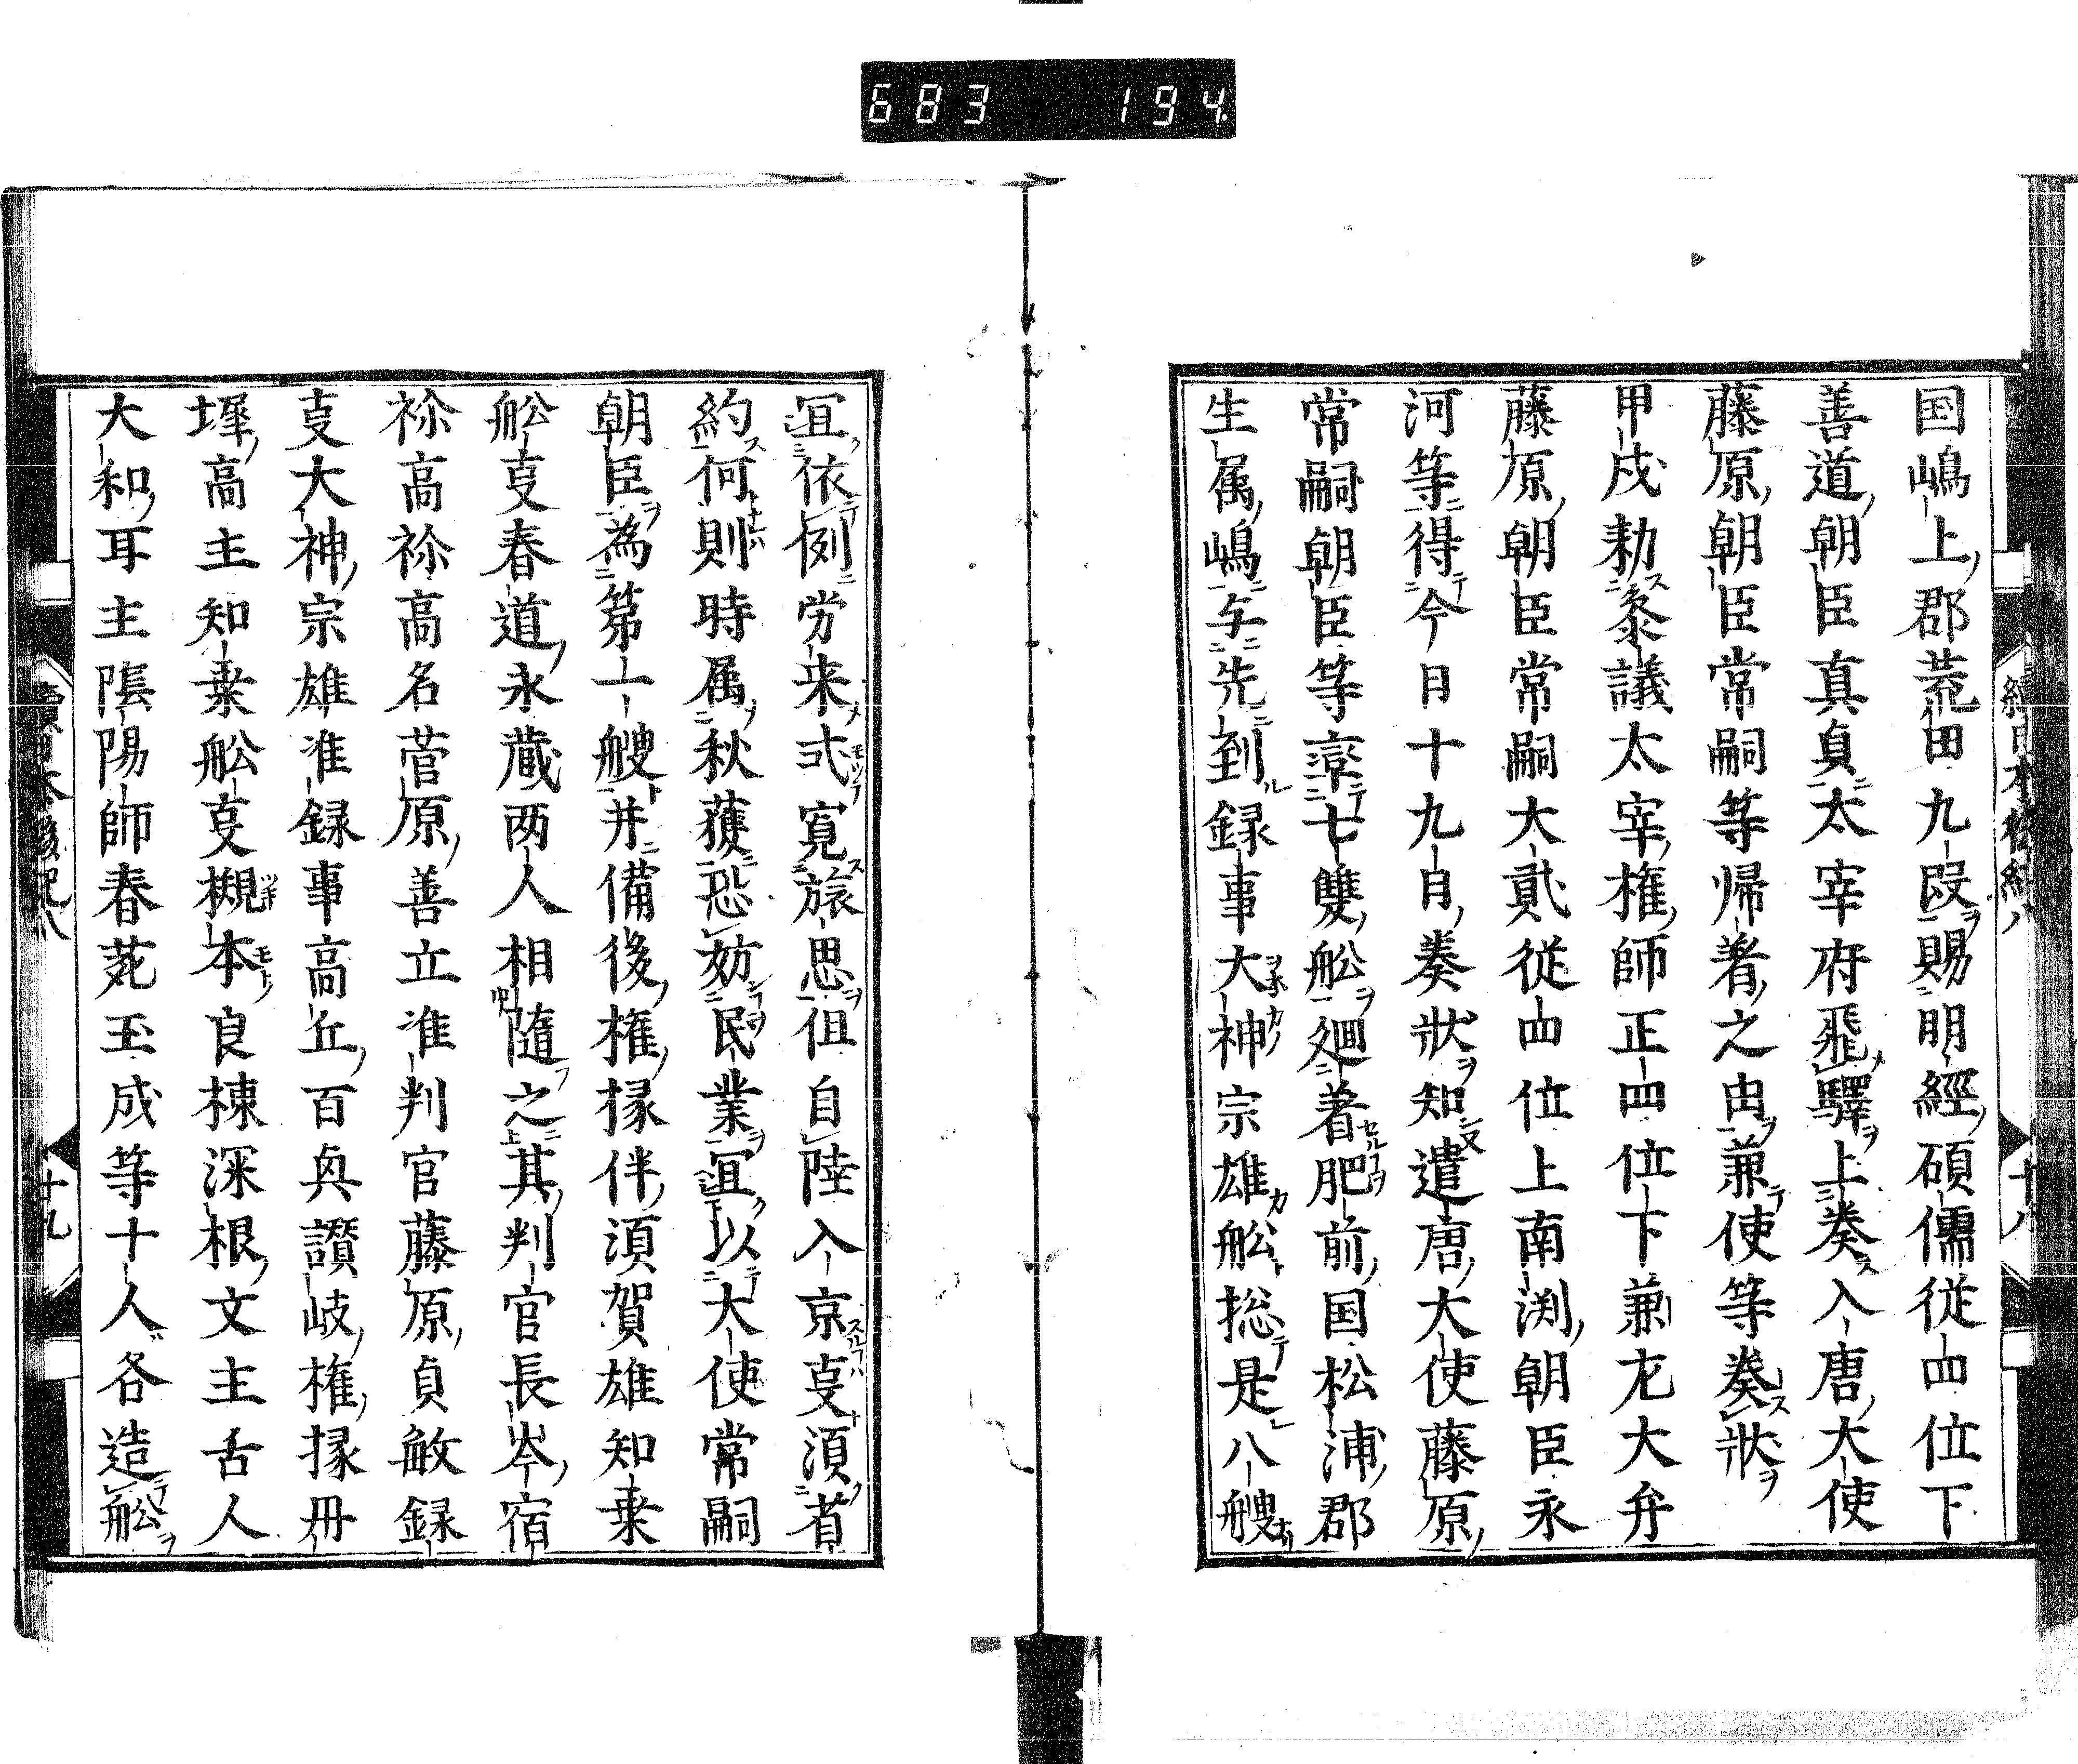 683 194
国嶋上郡荒田九段賜明經碩儒従四位下
善道朝臣真貞太宰府飛驛上奏入唐大使
藤原朝臣常嗣等帰着之由兼使等奏状
甲戌勅叅議太宰権帥正四位下兼左大弁
藤原朝臣常嗣大貮従四位上南渕朝臣永
河等得今月十九日奏状知遣唐大使藤原
常嗣朝臣等率七隻舩廻着肥前国松浦郡
生属嶋与先到録事大神宗雄舩捴是八艘
十八
宜依例労来式寛旅思但自陸入京事須省
約何則時属秋獲恐妨民業宜以大使常嗣
朝臣為第一艘并備後権掾伴須賀雄知乗
舩事春道永蔵両人相随之其判官長岑宿
祢高名菅原善立准判官藤原貞敏録
事大神宗雄准録事高丘百興讃岐権掾丹
墀高主知乗舩事槻本良棟深根文主舌人
大和耳主陰陽師春苑玉成等十人各造舩
續日本後紀八
十九